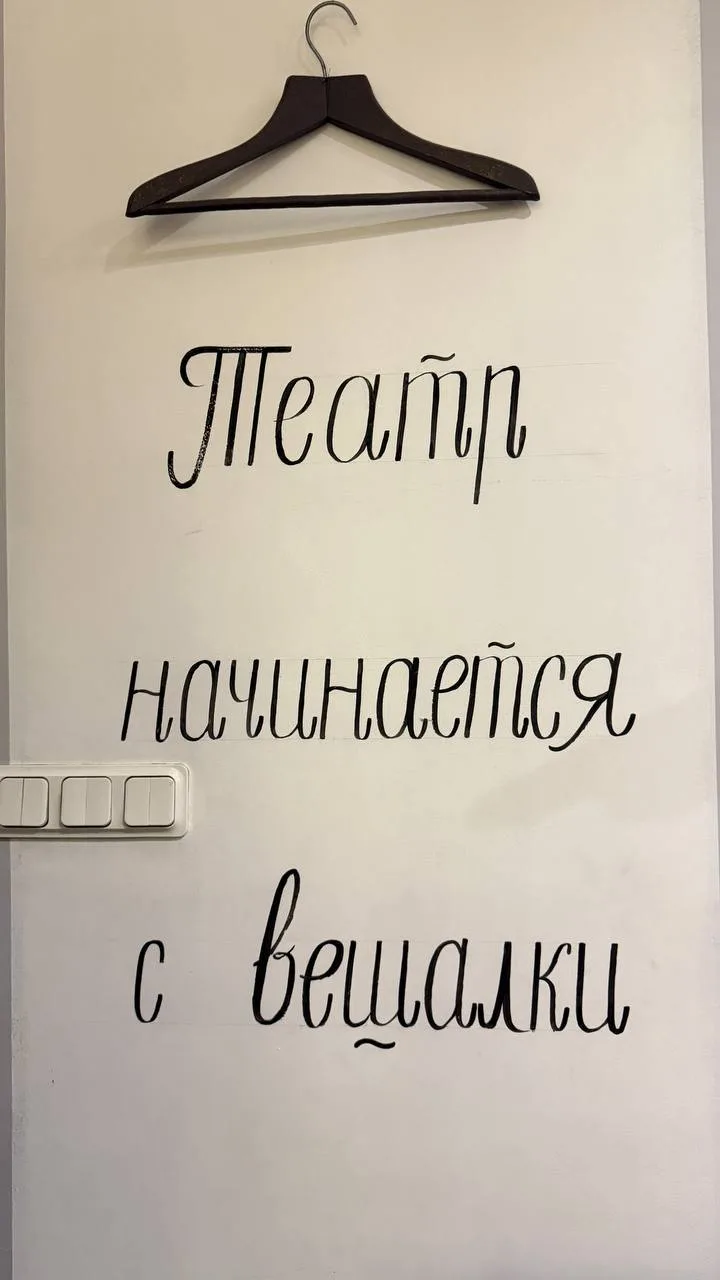 Театр
начинается
с вешалки